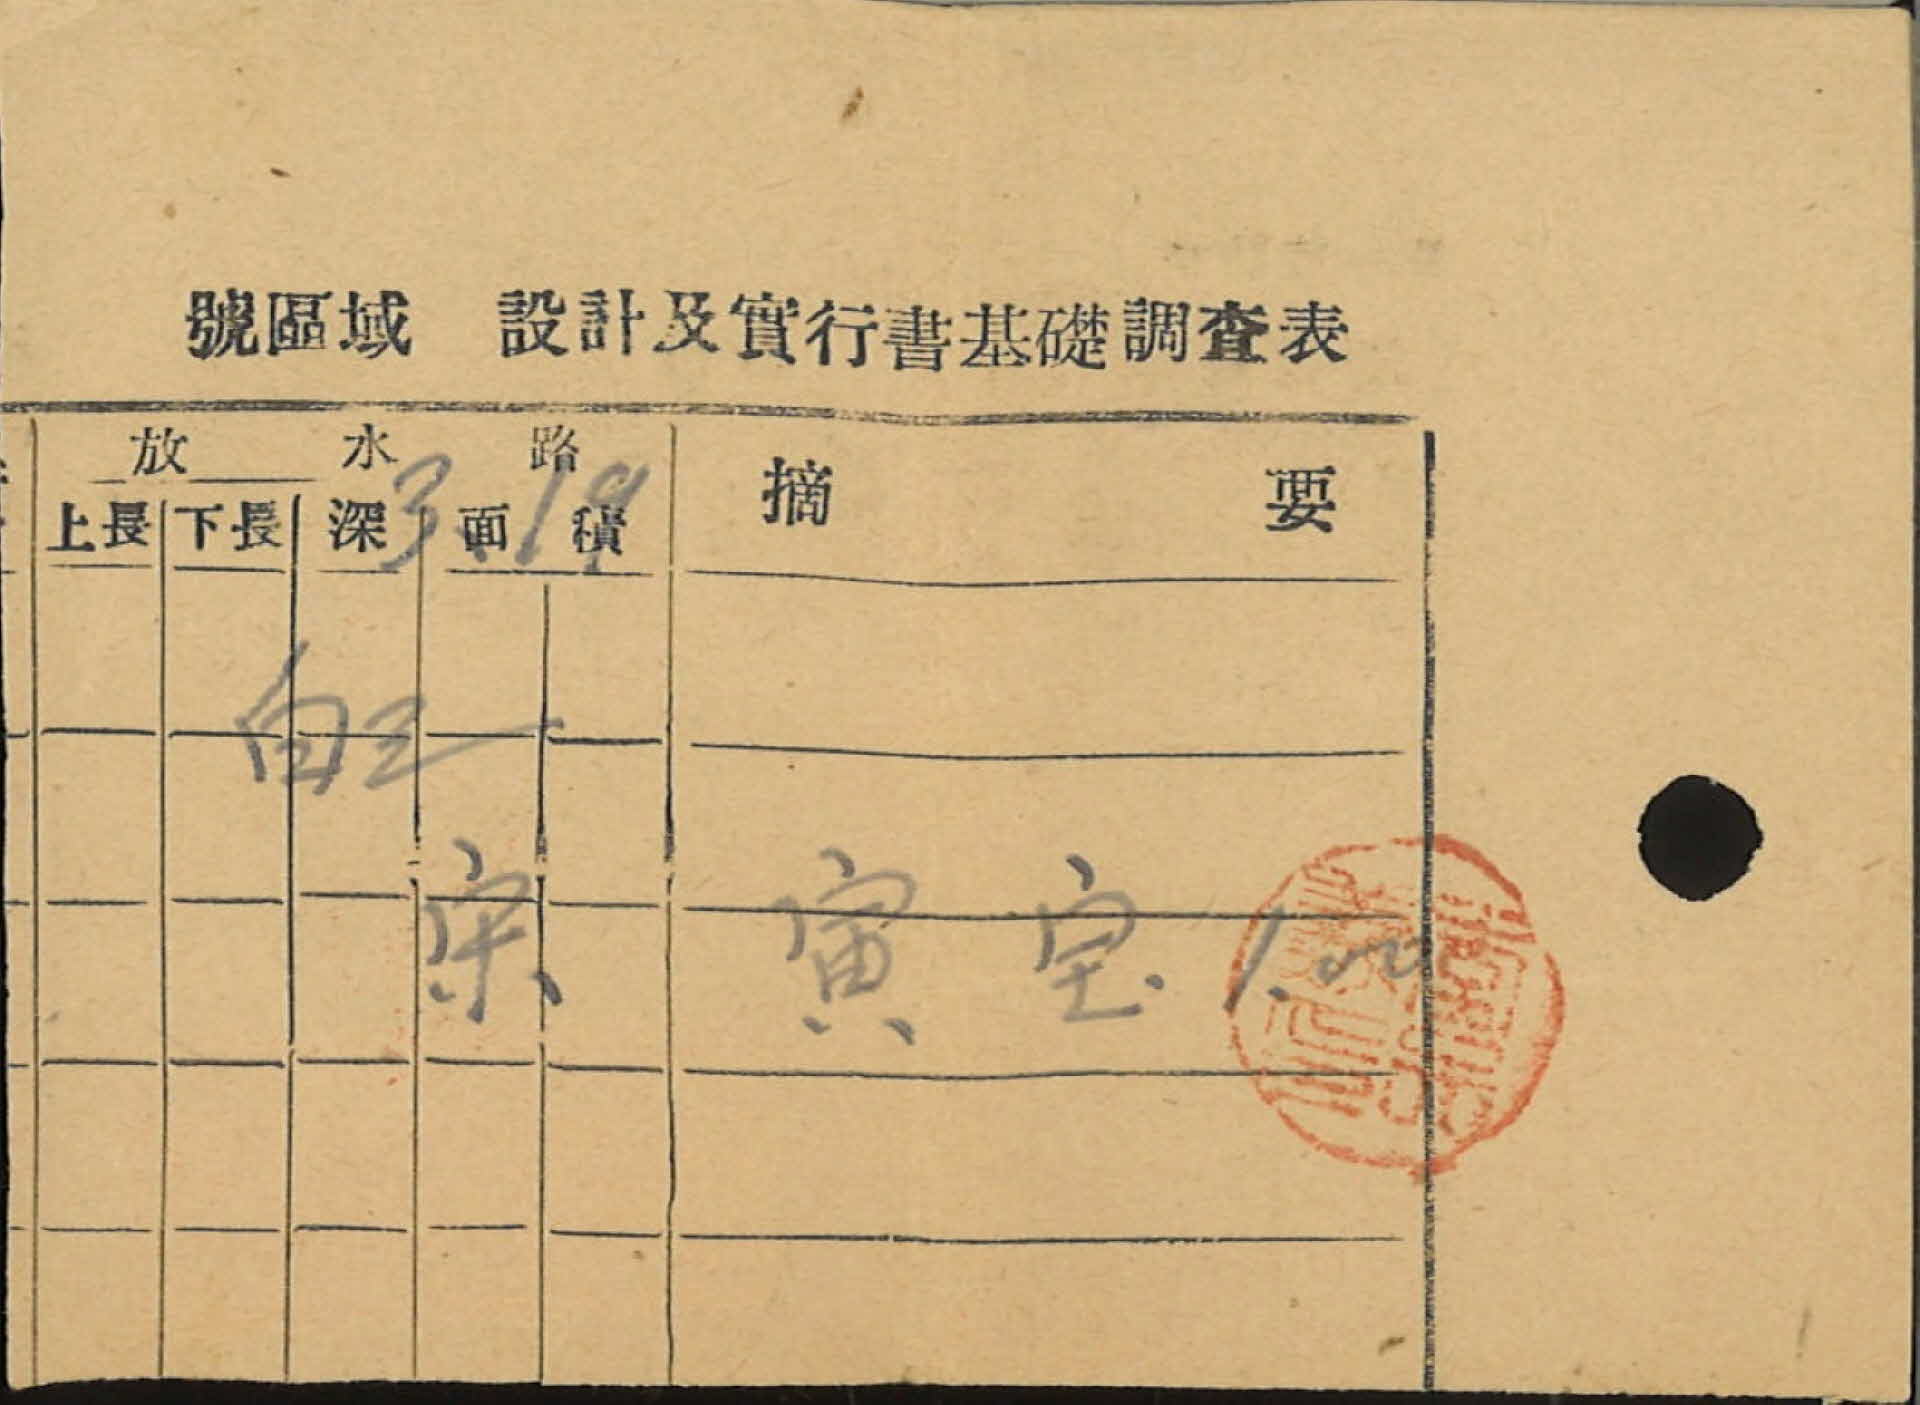 號區域 設計及實行書基礎調查表
放水路 摘要
上長 下長 深 面積
3.19
宋 寅 宝. 1.00